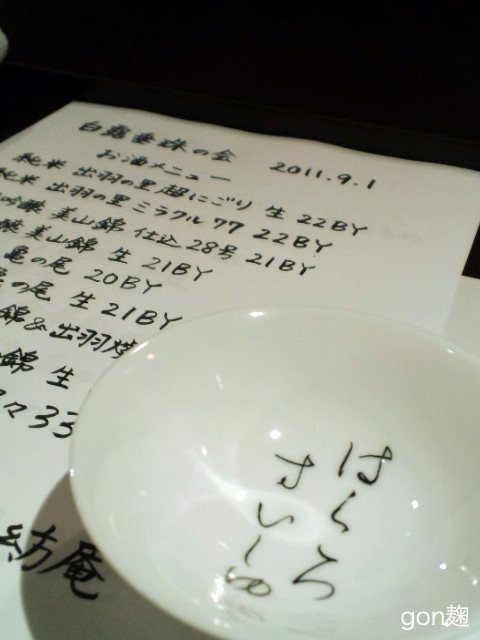 白露垂珠の会 2011.9.1
お酒メニュー
純米 出羽の里 超にごり 生 22BY
純米 出羽の里 ミラクル77 22BY
吟醸 美山錦 仕込28号 21BY
美山錦 生 21BY
亀の尾 20BY
の尾 生 21BY
錦&出羽燦
錦 生
々33
紡庵
はくろ
すいしゅ
gon麹